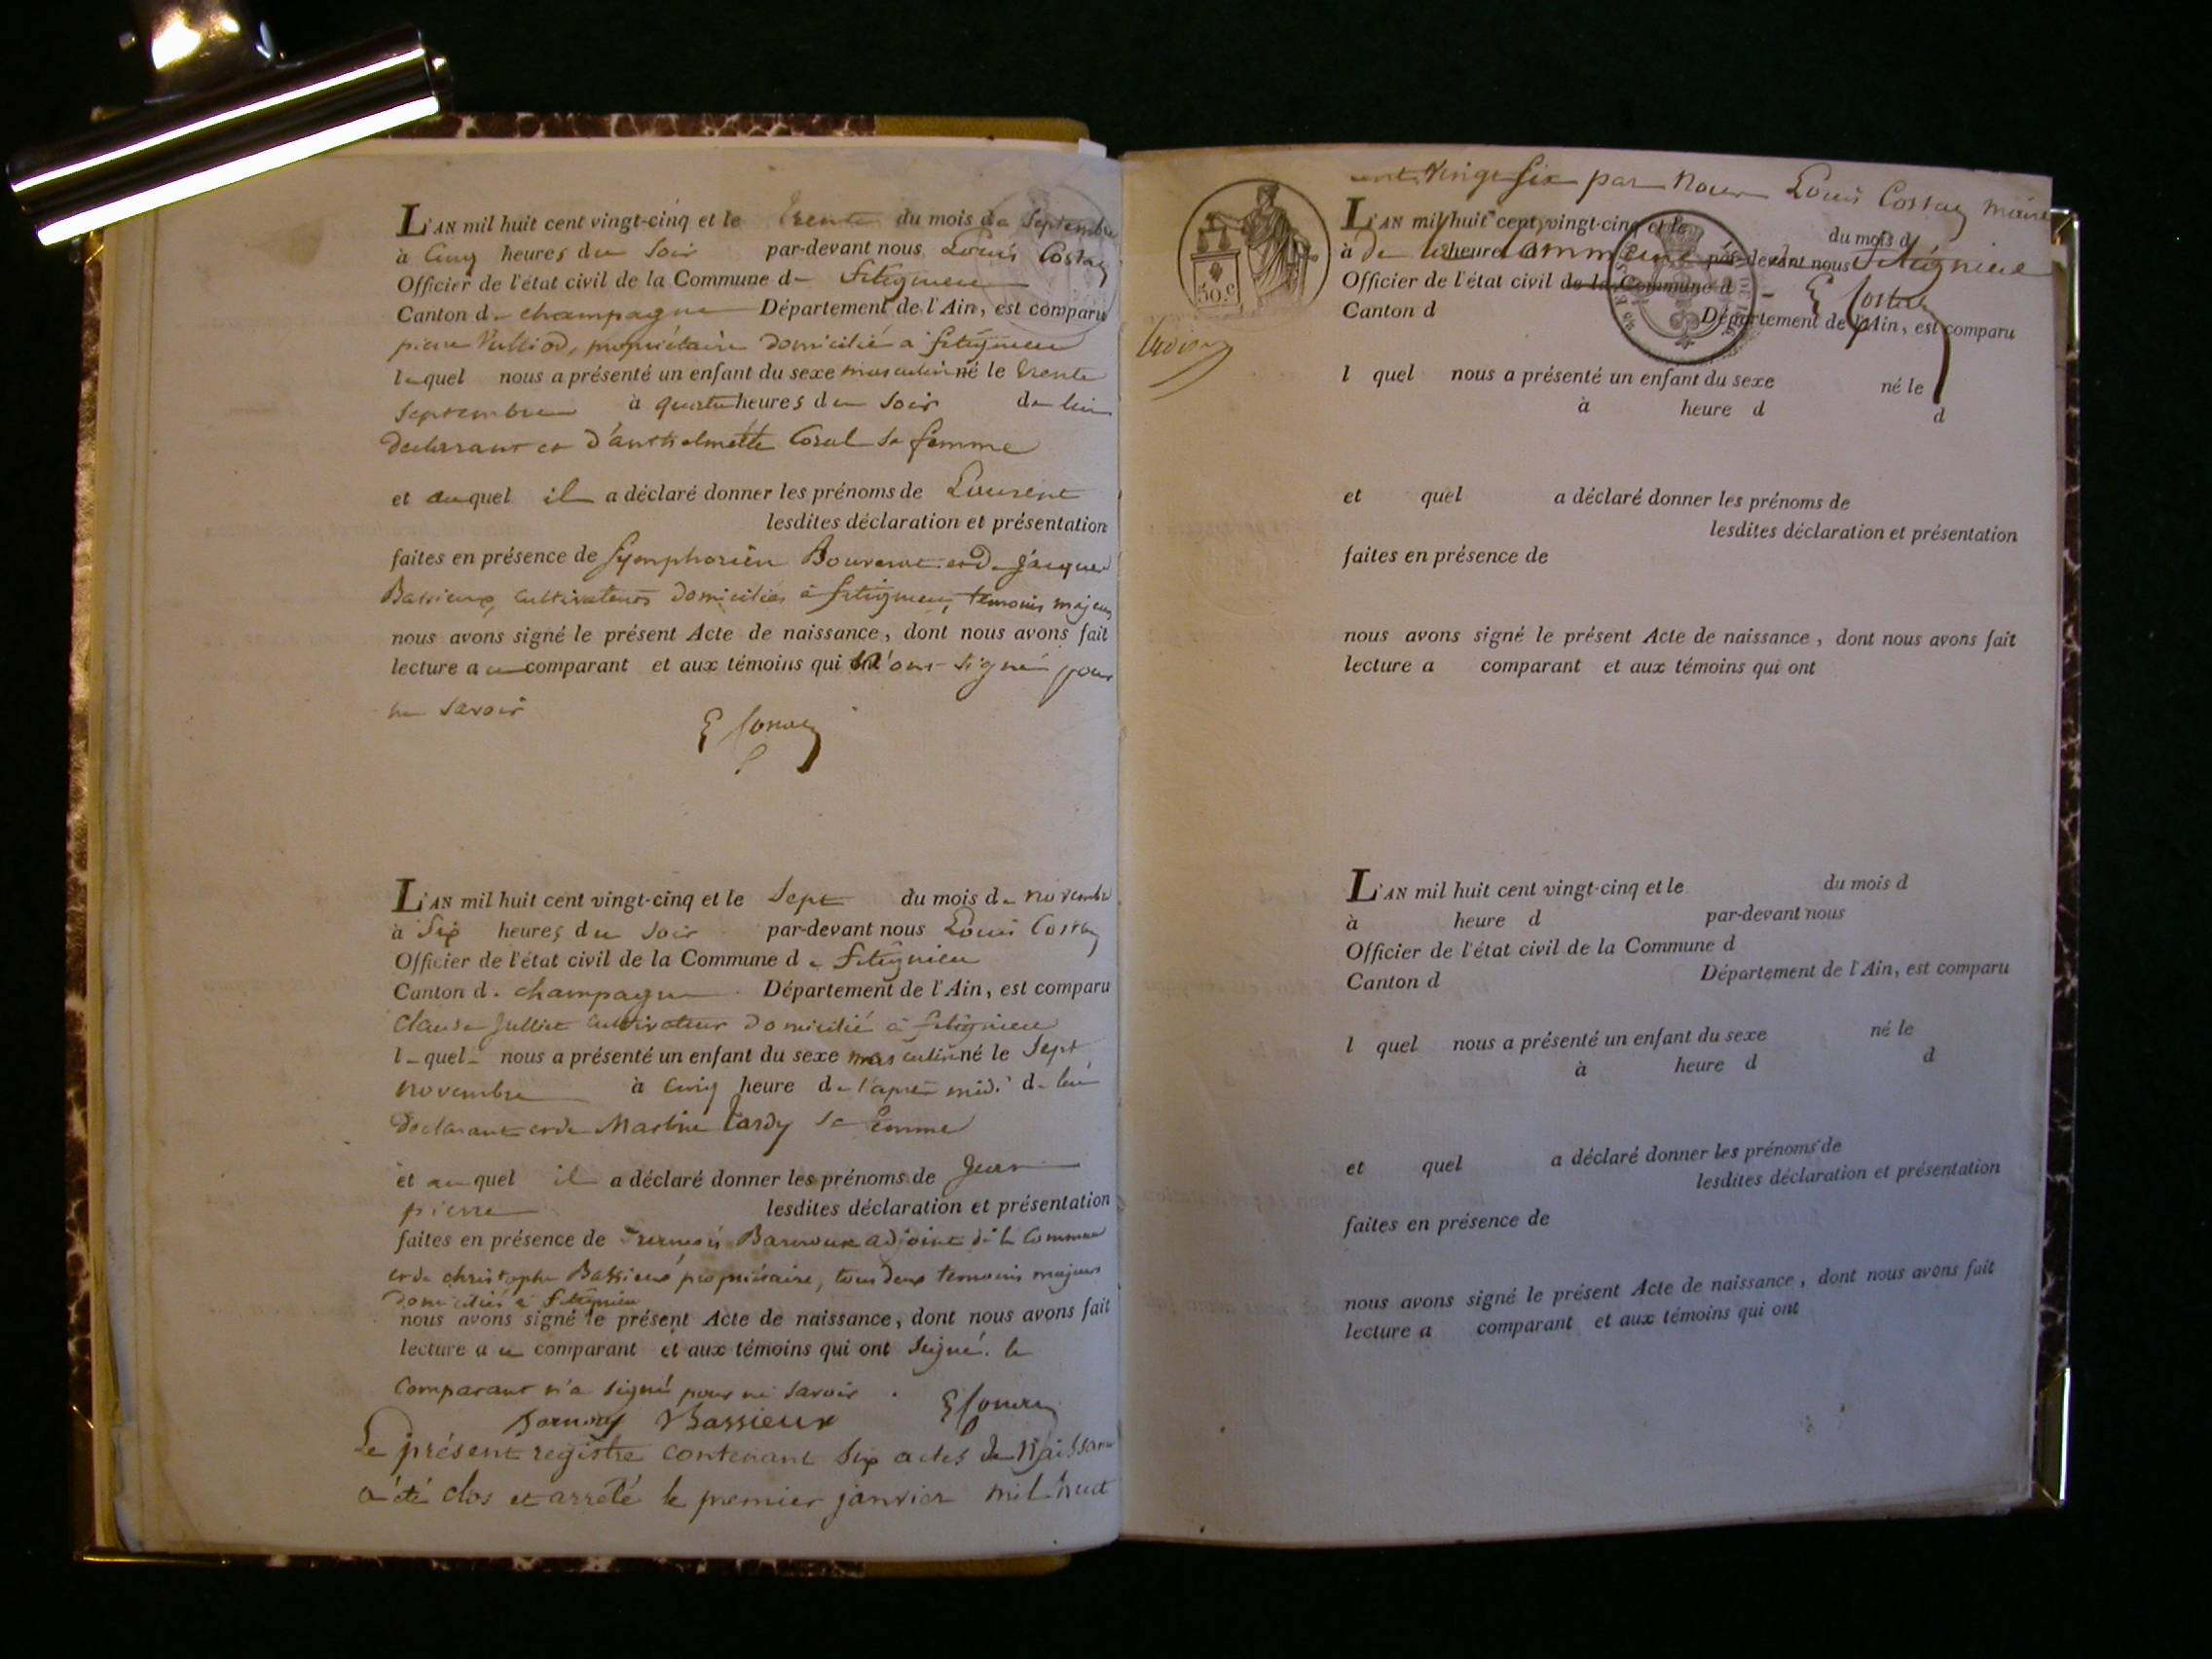 L'AN mil huit cent vingt-cinq et le trente du mois de Septembre
à Cinq heures du Soir par-devant nous Louis Costaz
Officier de l'état civil de la Commune de fitignieu
Canton de champagne Département de l'Ain, est comparu
pierre Vulliod, propriétaire domicilié a fitignieu
lequel nous a présenté un enfant du sexe masculin né le trente
Septembre à quatre heures du Soir de lui
declarant et d'anthelmette Coral sa femme
et auquel il a déclaré donner les prénoms de Laurent
lesdites déclaration et présentation
faites en présence de Symphorien et de jacques
Bassieux, cultivateurs domiciliés a fitignieu, temoins majeurs
nous avons signé le présent Acte de naissance, dont nous avons fait
lecture a ce comparant et aux témoins qui n'ont signé pour
ne savoir
L'AN mil huit cent vingt-cinq et le Sept du mois de novembre
à Six heures du Soir par-devant nous Louis Costaz
Officier de l'état civil de la Commune de fitignieu
Canton de champagne Département de l'Ain, est comparu
Claude Julliet cultivateur domicilié a fitignieu
lequel nous a présenté un enfant du sexe masculin né le Sept
novembre à Cinq heure de l'après midi de lui
declarant et de Martine tardy sa femme
et auquel il a déclaré donner les prénoms de Jean
pierre lesdites déclaration et présentation
faites en présence de adjoint de la Commune
et de christophe Bassieux propriétaire, tous deux temoins majeurs
domiciliés a fitignieu
nous avons signé le présent Acte de naissance, dont nous avons fait
lecture a ce comparant et aux témoins qui ont Signé. le
Comparant n'a signé pour ne savoir.
Bassieux
Le présent registre contenant Six actes de Naissance
a été clos et arrêté le premier janvier mil huit
cent vingt six par nous Louis Costaz maire
L'AN mil huit cent vingt-cinq et le du mois d
de la Commune de fitignieu
à heure d par-devant nous
Officier de l'état civil de la Commune d
Canton d Département de l'Ain, est comparu
50.C
l quel nous a présenté un enfant du sexe né le
à heure d d
et quel a déclaré donner les prénoms de
lesdites déclaration et présentation
faites en présence de
nous avons signé le présent Acte de naissance, dont nous avons fait
lecture a comparant et aux témoins qui ont
L'AN mil huit cent vingt-cinq et le du mois d
à heure d par-devant nous
Officier de l'état civil de la Commune d
Canton d Département de l'Ain, est comparu
l quel nous a présenté un enfant du sexe né le
à heure d d
et quel a déclaré donner les prénoms de
lesdites déclaration et présentation
faites en présence de
nous avons signé le présent Acte de naissance, dont nous avons fait
lecture a comparant et aux témoins qui ont